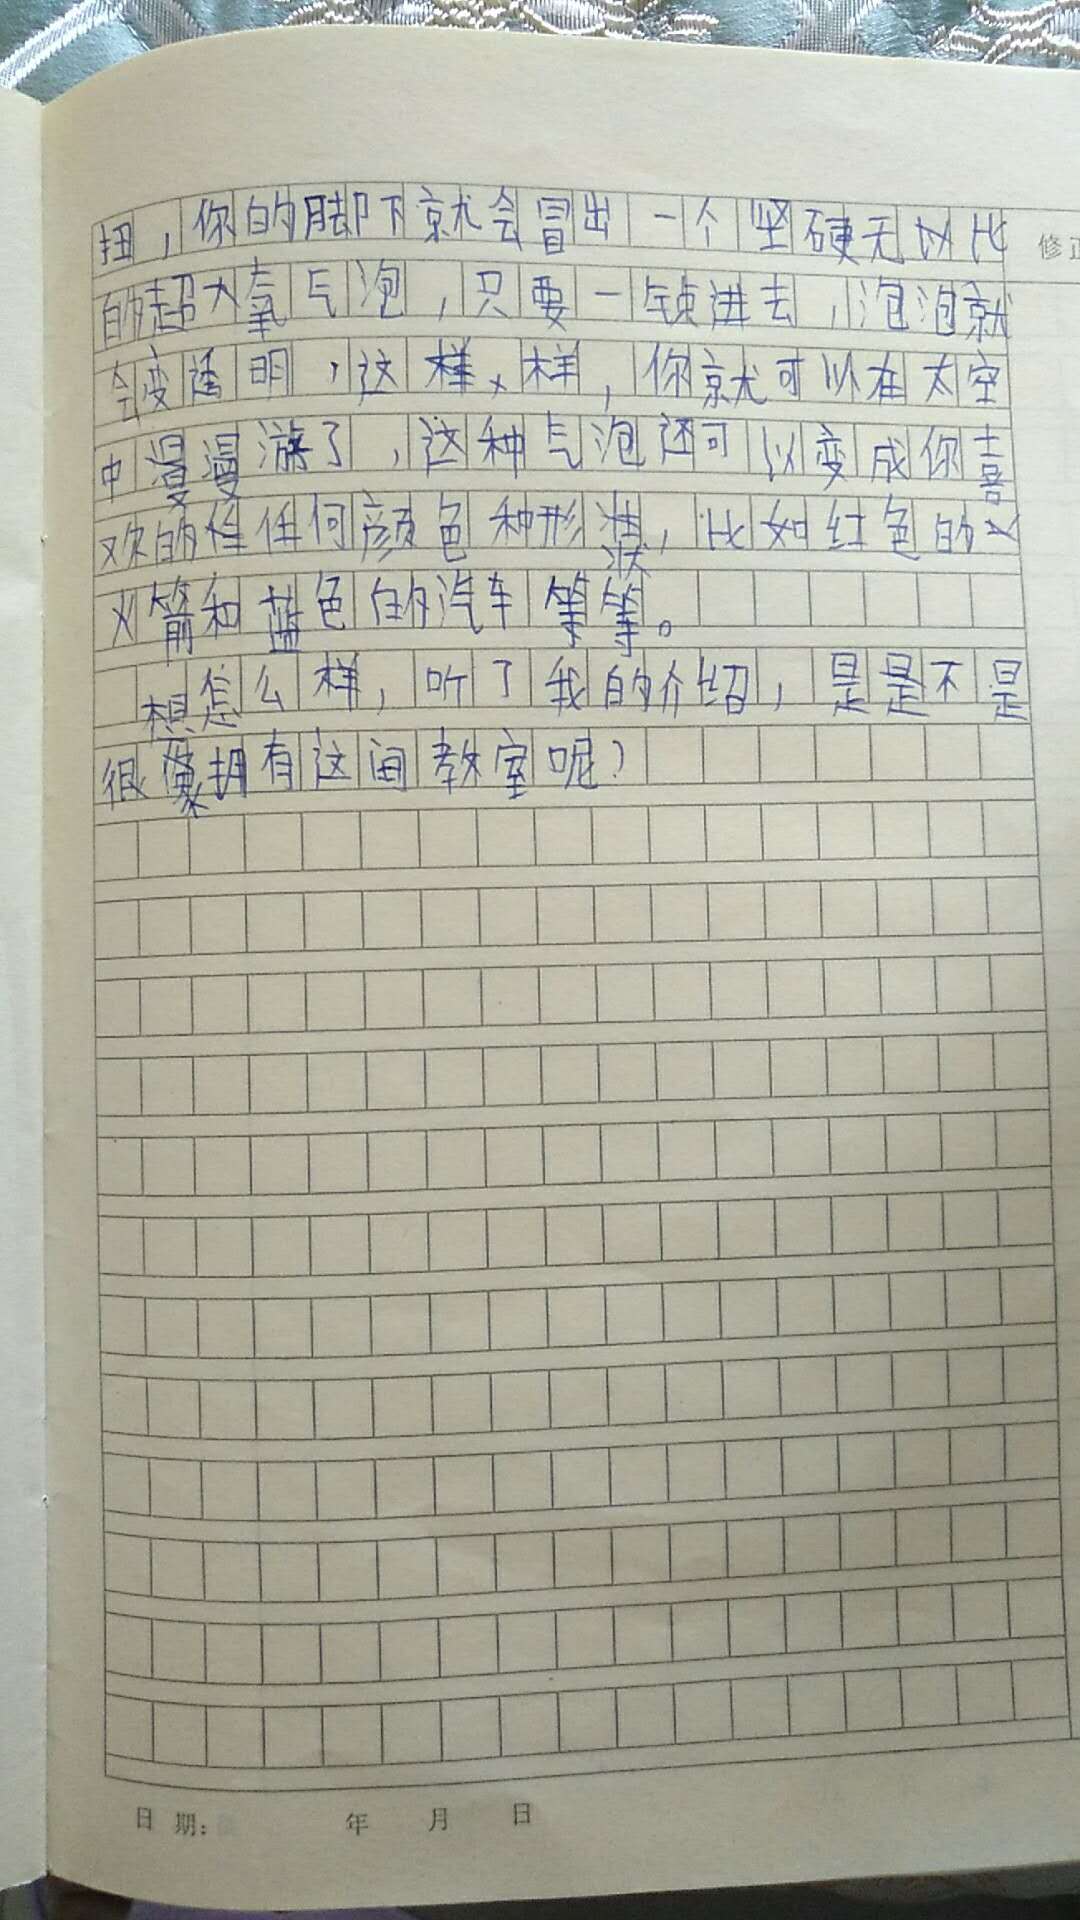 扭，你的脚下就会冒出一个坚硬无以比
修正
的超大氧气泡，只要一钻进去，泡泡就
会变透明，这样、样，你就可以在太空
中漫漫游了，这种气泡还可以变成你喜
欢的任任何颜色和形状，比如红色的火
火箭和蓝色的汽车等等。
想怎么样，听了我的介绍，是是不是
很像拥有这间教室呢？
日期： 年 月 日